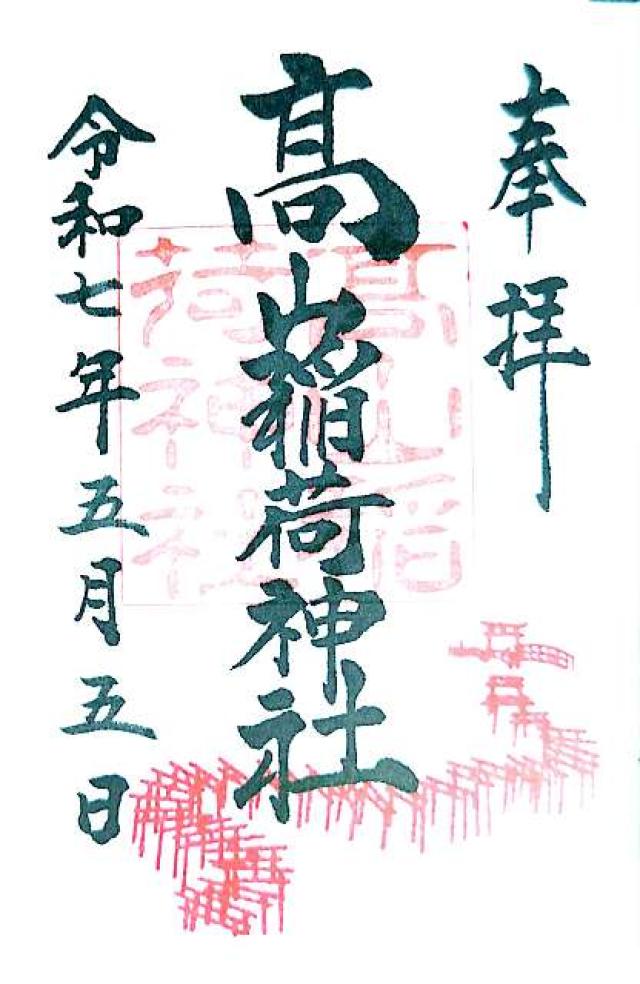 奉拝
髙山稲荷神社
髙山稲
荷神社
令和七年五月五日